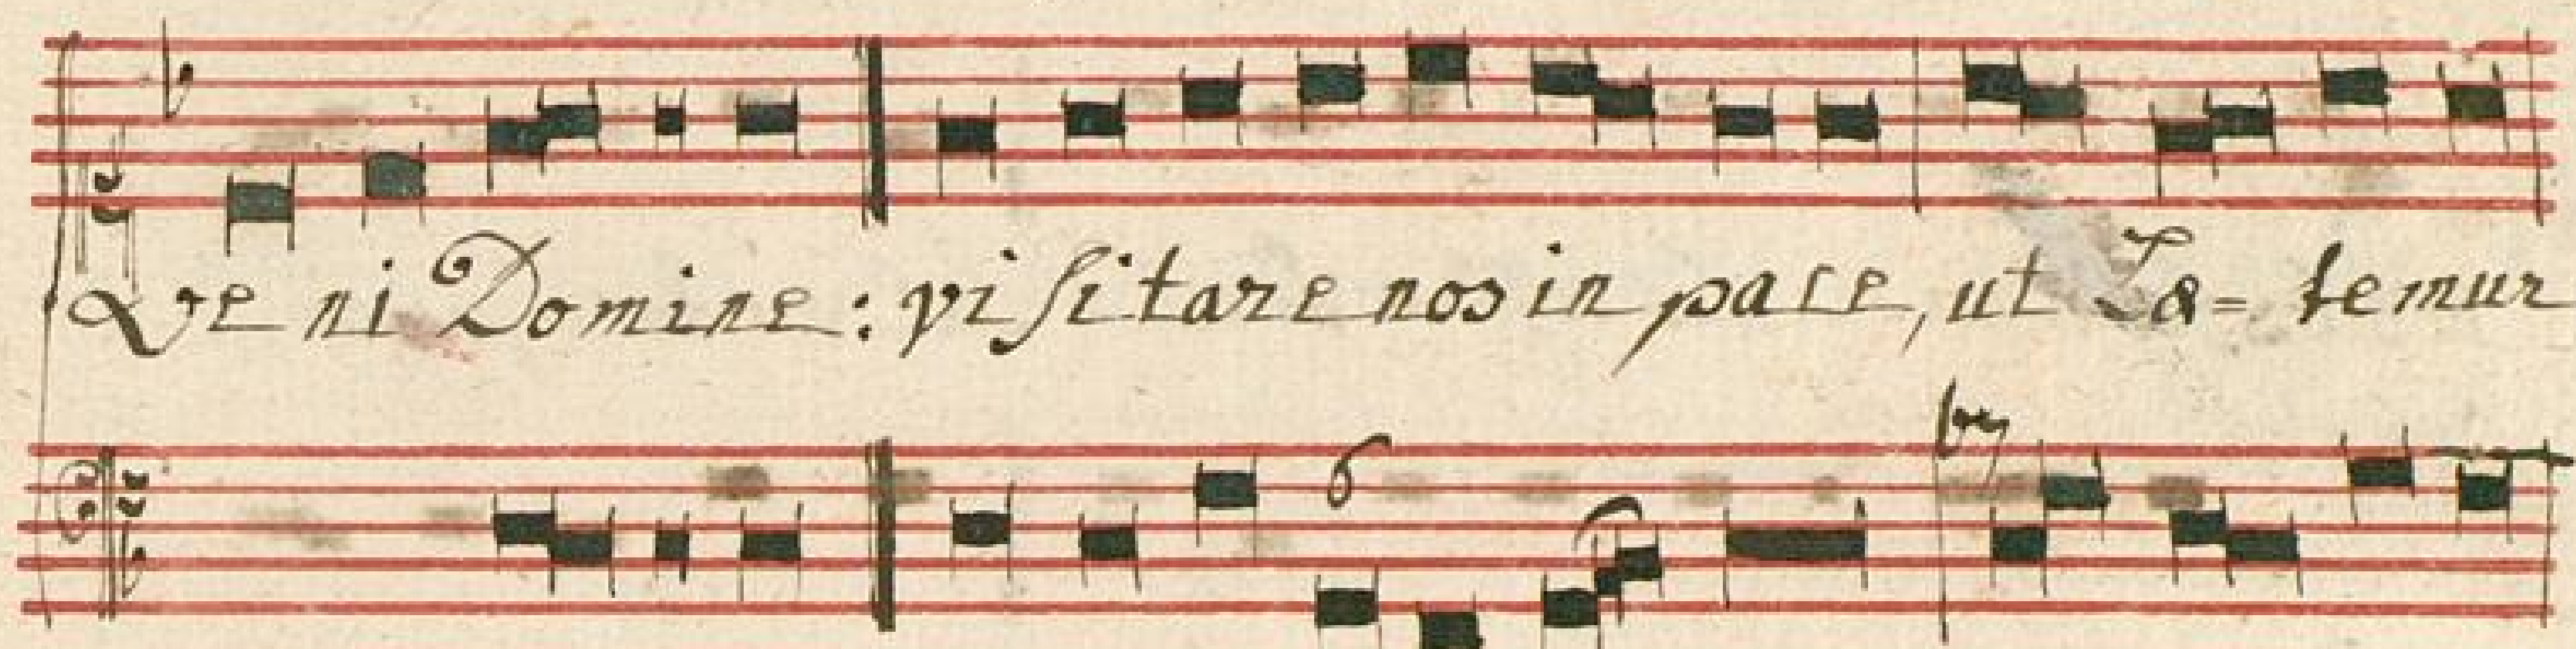 Veni Domine: visitare nos in pace, ut Læ=temur